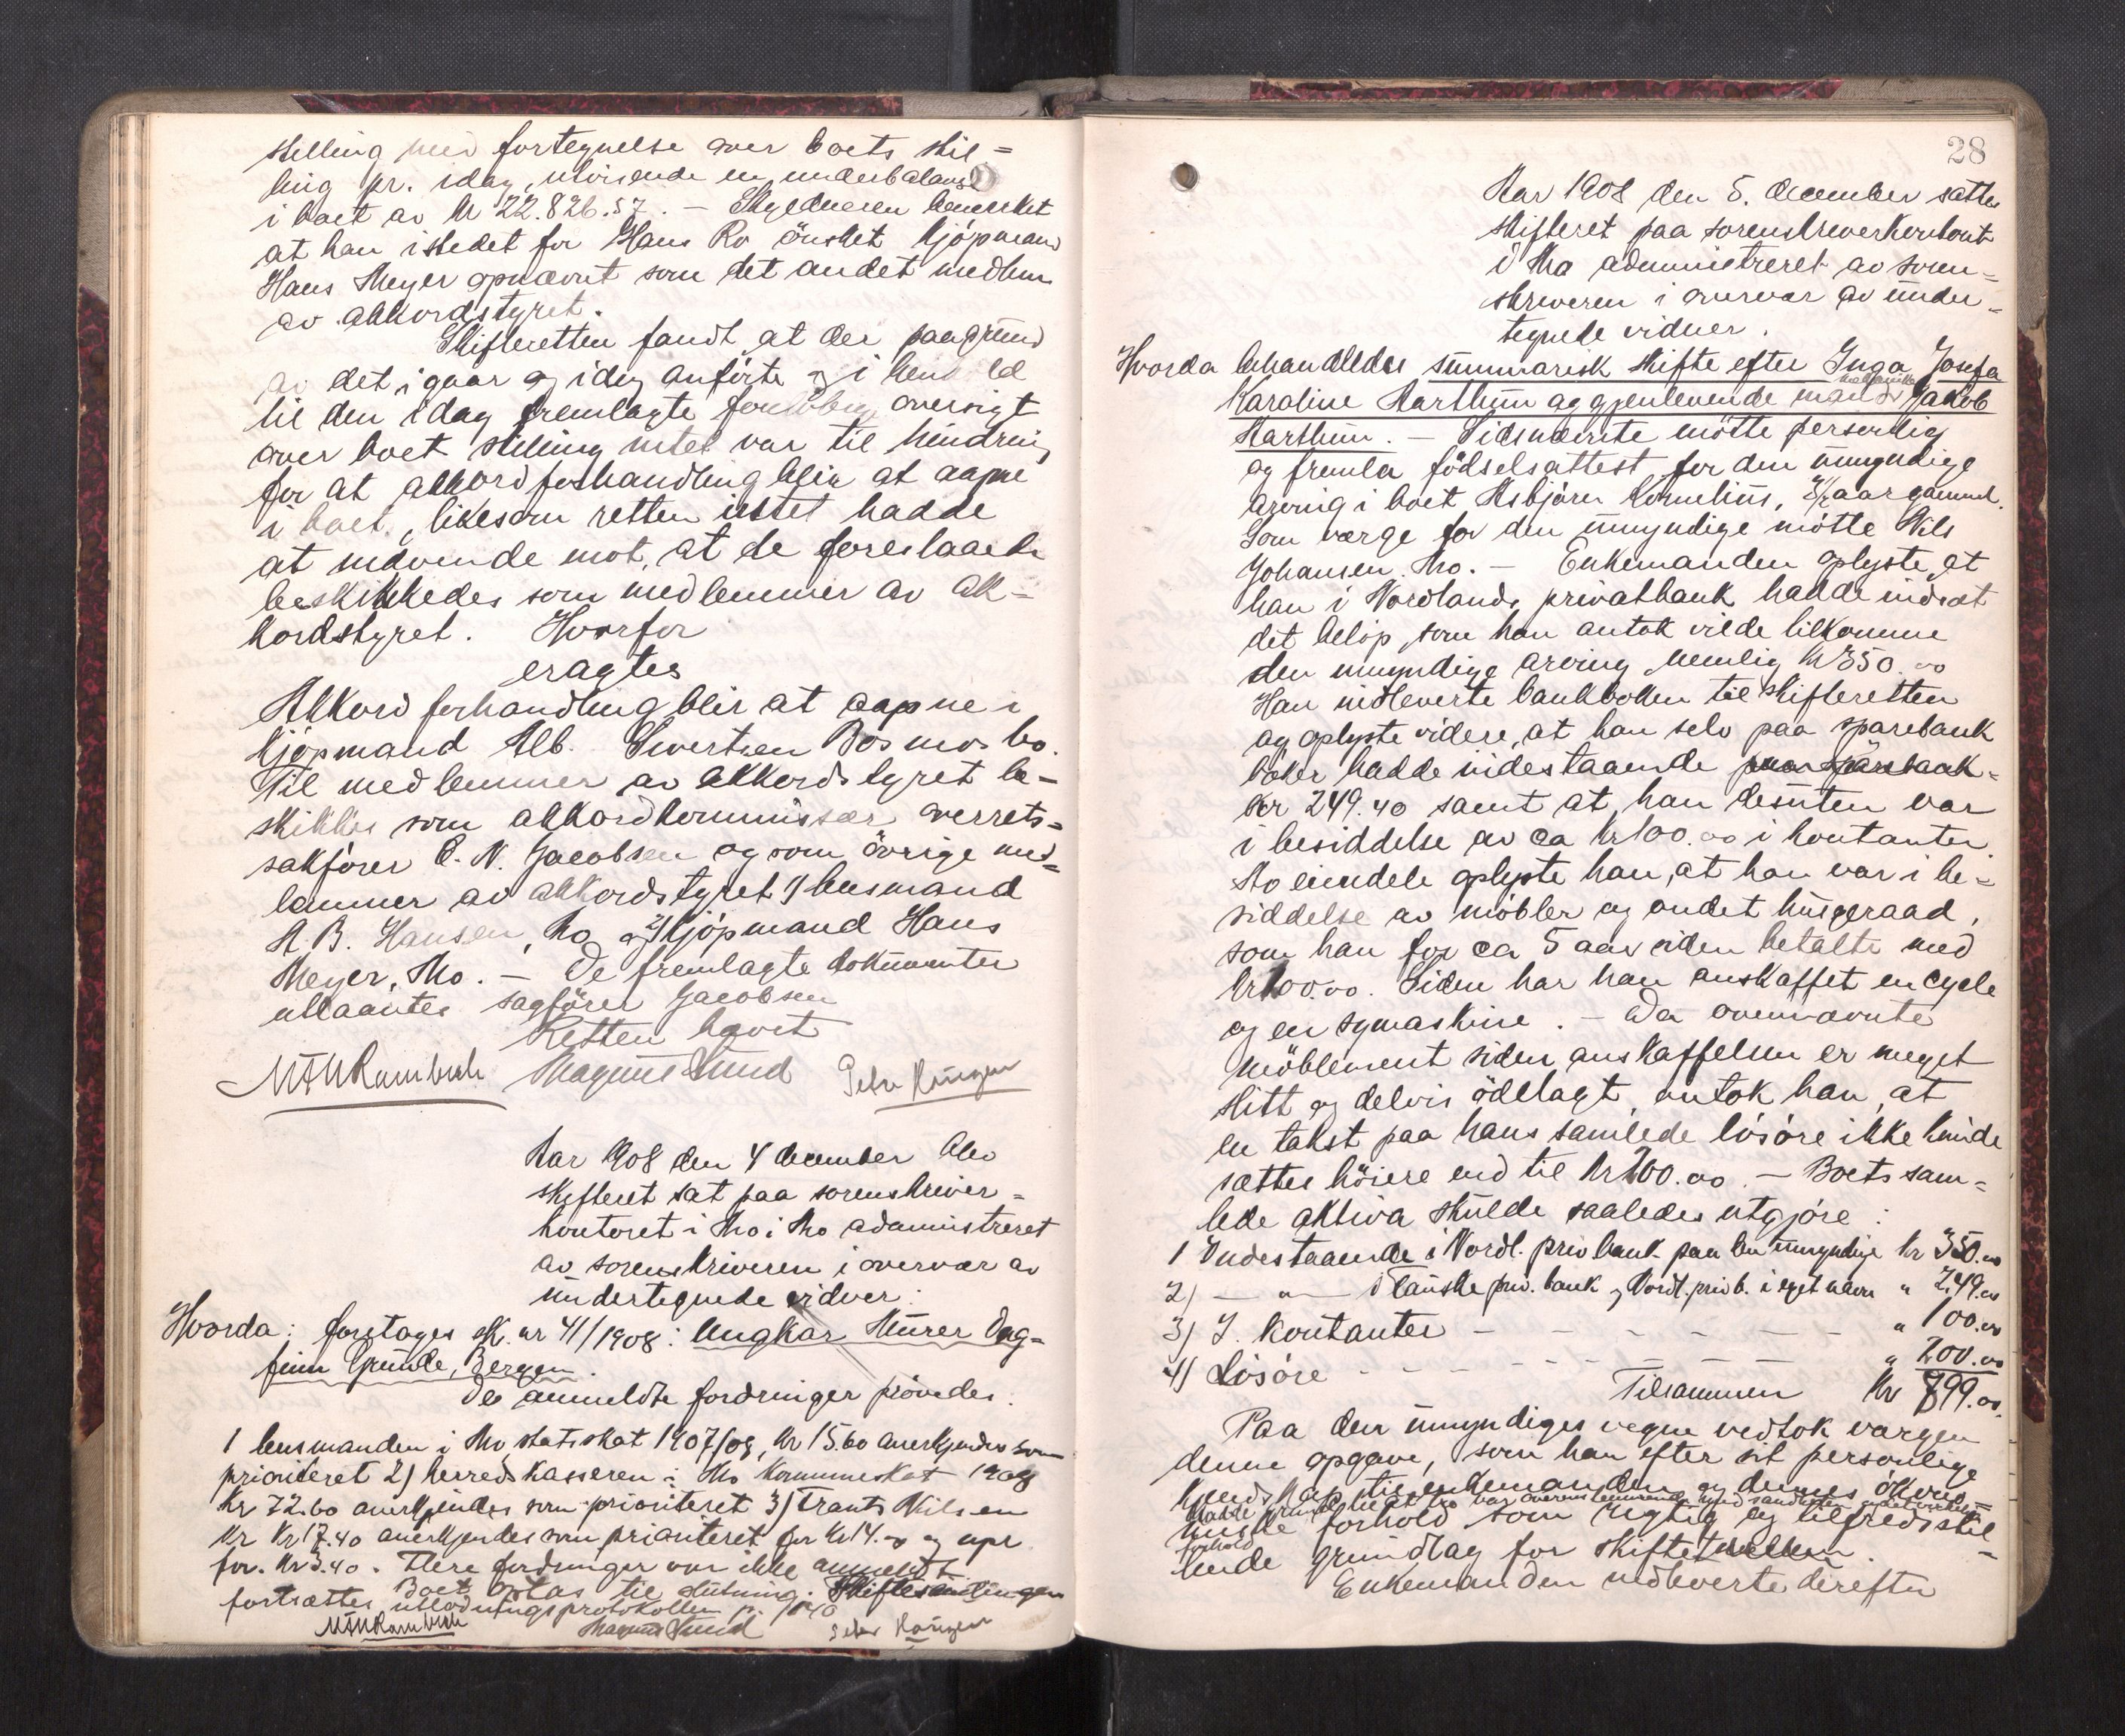 stilling med fortegnelse over boets stil=
ling pr. idag, utvisende en underbalanse
i boet av kr 22.826.57. – Skyldneren bemerket
at han istedet for Hans Ro önsket kjöpmand
Hans Meyer opnævnt som det andet medlem
av akkordstyret.
Skifteretten fandt at der paa grund
av det igaar og idag anförte og i henhold
til den idag fremlagte foreløbige oversigt
over boets stilling intet var til hindring
for at akkordforhandling blir at aapne
i boet, likesom retten intet hadde
at indvende mot, at de foreslaaede
beskikkedes som medlemmer av ak=
kordstyret. Hvorfor
eragtes
Akkordforhandling blir at aapne i
kjöpmand Alb. Sivertsen Bosmos bo.
Til medlemmer av akkordstyret be=
skikkes som akkordkommissær overrets=
sakförer C. N. Jacobsen og som övrige med=
lemmer av akkordstyret 1) lensmand
A. B. Hansen, Mo og 2) kjöpmand Hans
Meyer, Mo. – De fremlagte dokumenter
utlaantes sagförer Jacobsen
Retten hævet
Magnus Lund Peder
Aar 1908 den 4 december blev
skifteret sat paa sorenskriver=
kontoret i Mo i Mo administreret
av sorenskriveren i overvær av
undertegnede vidner:
Hvorda: foretages sk. nr 41/1908: Ungkar Murer Dag=
finn Grunde, Bergen.
De anmeldte fordringer prövedes.
1 lensmanden i Mo statsskat 1907/08, kr 15.60 anerkjendes som
prioriteret 2) herredskassereren i Mo kommuneskat 1908
kr 72.60 anerkjendes som prioriteret 3) Trants Nilsen
kr 17.40 anerkjendes som prioriteret for kr 14.– og upr
for. kr 3.40. Flere fordringer var ikke anmeldt
Boet optas til slutning. Skiftesamlingen
fortsættes utlodningsprotokollen p.
Magnus Lund Peder
28
Aar 1908 den 5. december sattes
skifteret paa sorenskriverkontoret
i Mo administreret av soren=
skriveren i overvær av under=
tegnede vidner.
Hvorda behandledes summarisk skifte efter Inga Josefa
Karoline Aarthun og gjenlevende mand Jakob
Aarthun. – Sidstnævnte mötte personlig
og fremla födselsattest for den umyndige
arving i boet Asbjörn Kornelius, aar gammel.
Som værge for den umyndige mötte Nils
Johansen Mo. – Enkemanden oplyste, at
han i Nordlands privatbank hadde indsat
det belöp, som han antok vilde tilkomme
den umyndige arving, nemlig kr 350.00
Han indleverte bankboken til skifteretten
og oplyste videre, at han selv paa sparebank
böker hadde indestaaende paa sparebank=
kr 249.40 samt at han desuten var
i besiddelse av ca kr 100.00 i kontanter.
Av eiendele oplyste han, at han var i be=
siddelse av möbler og andet husgeraad,
som han for ca 5 aar siden betalte med
kr 100.00. Siden har han anskaffet en cycle
og en symaskine. – Da ovennævnte
möblement siden anskaffelsen er meget
slitt og delvis ödelagt, antok han, at
en takst paa hans samlede lösöre ikke kunde
sættes höiere end til kr 200.00. – Boets sam=
lede aktiva skulde saaledes utgjöre:
1 Indestaaende i Nordl. priv bank paa den umyndige kr 350.00
2) – " – i Ranske priv. bank og Nordl. priv b. i eget navn " 249.00
3) I kontanter – – – – – " 100.00
4) Lösöre – – – – – " 200.00
Tilsammen kr 899.00.
Paa den umyndiges vegne vedtok værgen
denne opgave, som han efter sit personlige
kjendskap til enkemanden og dennes ökono=
hadde grund til at tro var overensstemmende med sandheten og det virkelige
miske forhold som rigtig og tilfredsstil=
forhold
lende grundlag for skiftet
Enkemanden indleverte derefter